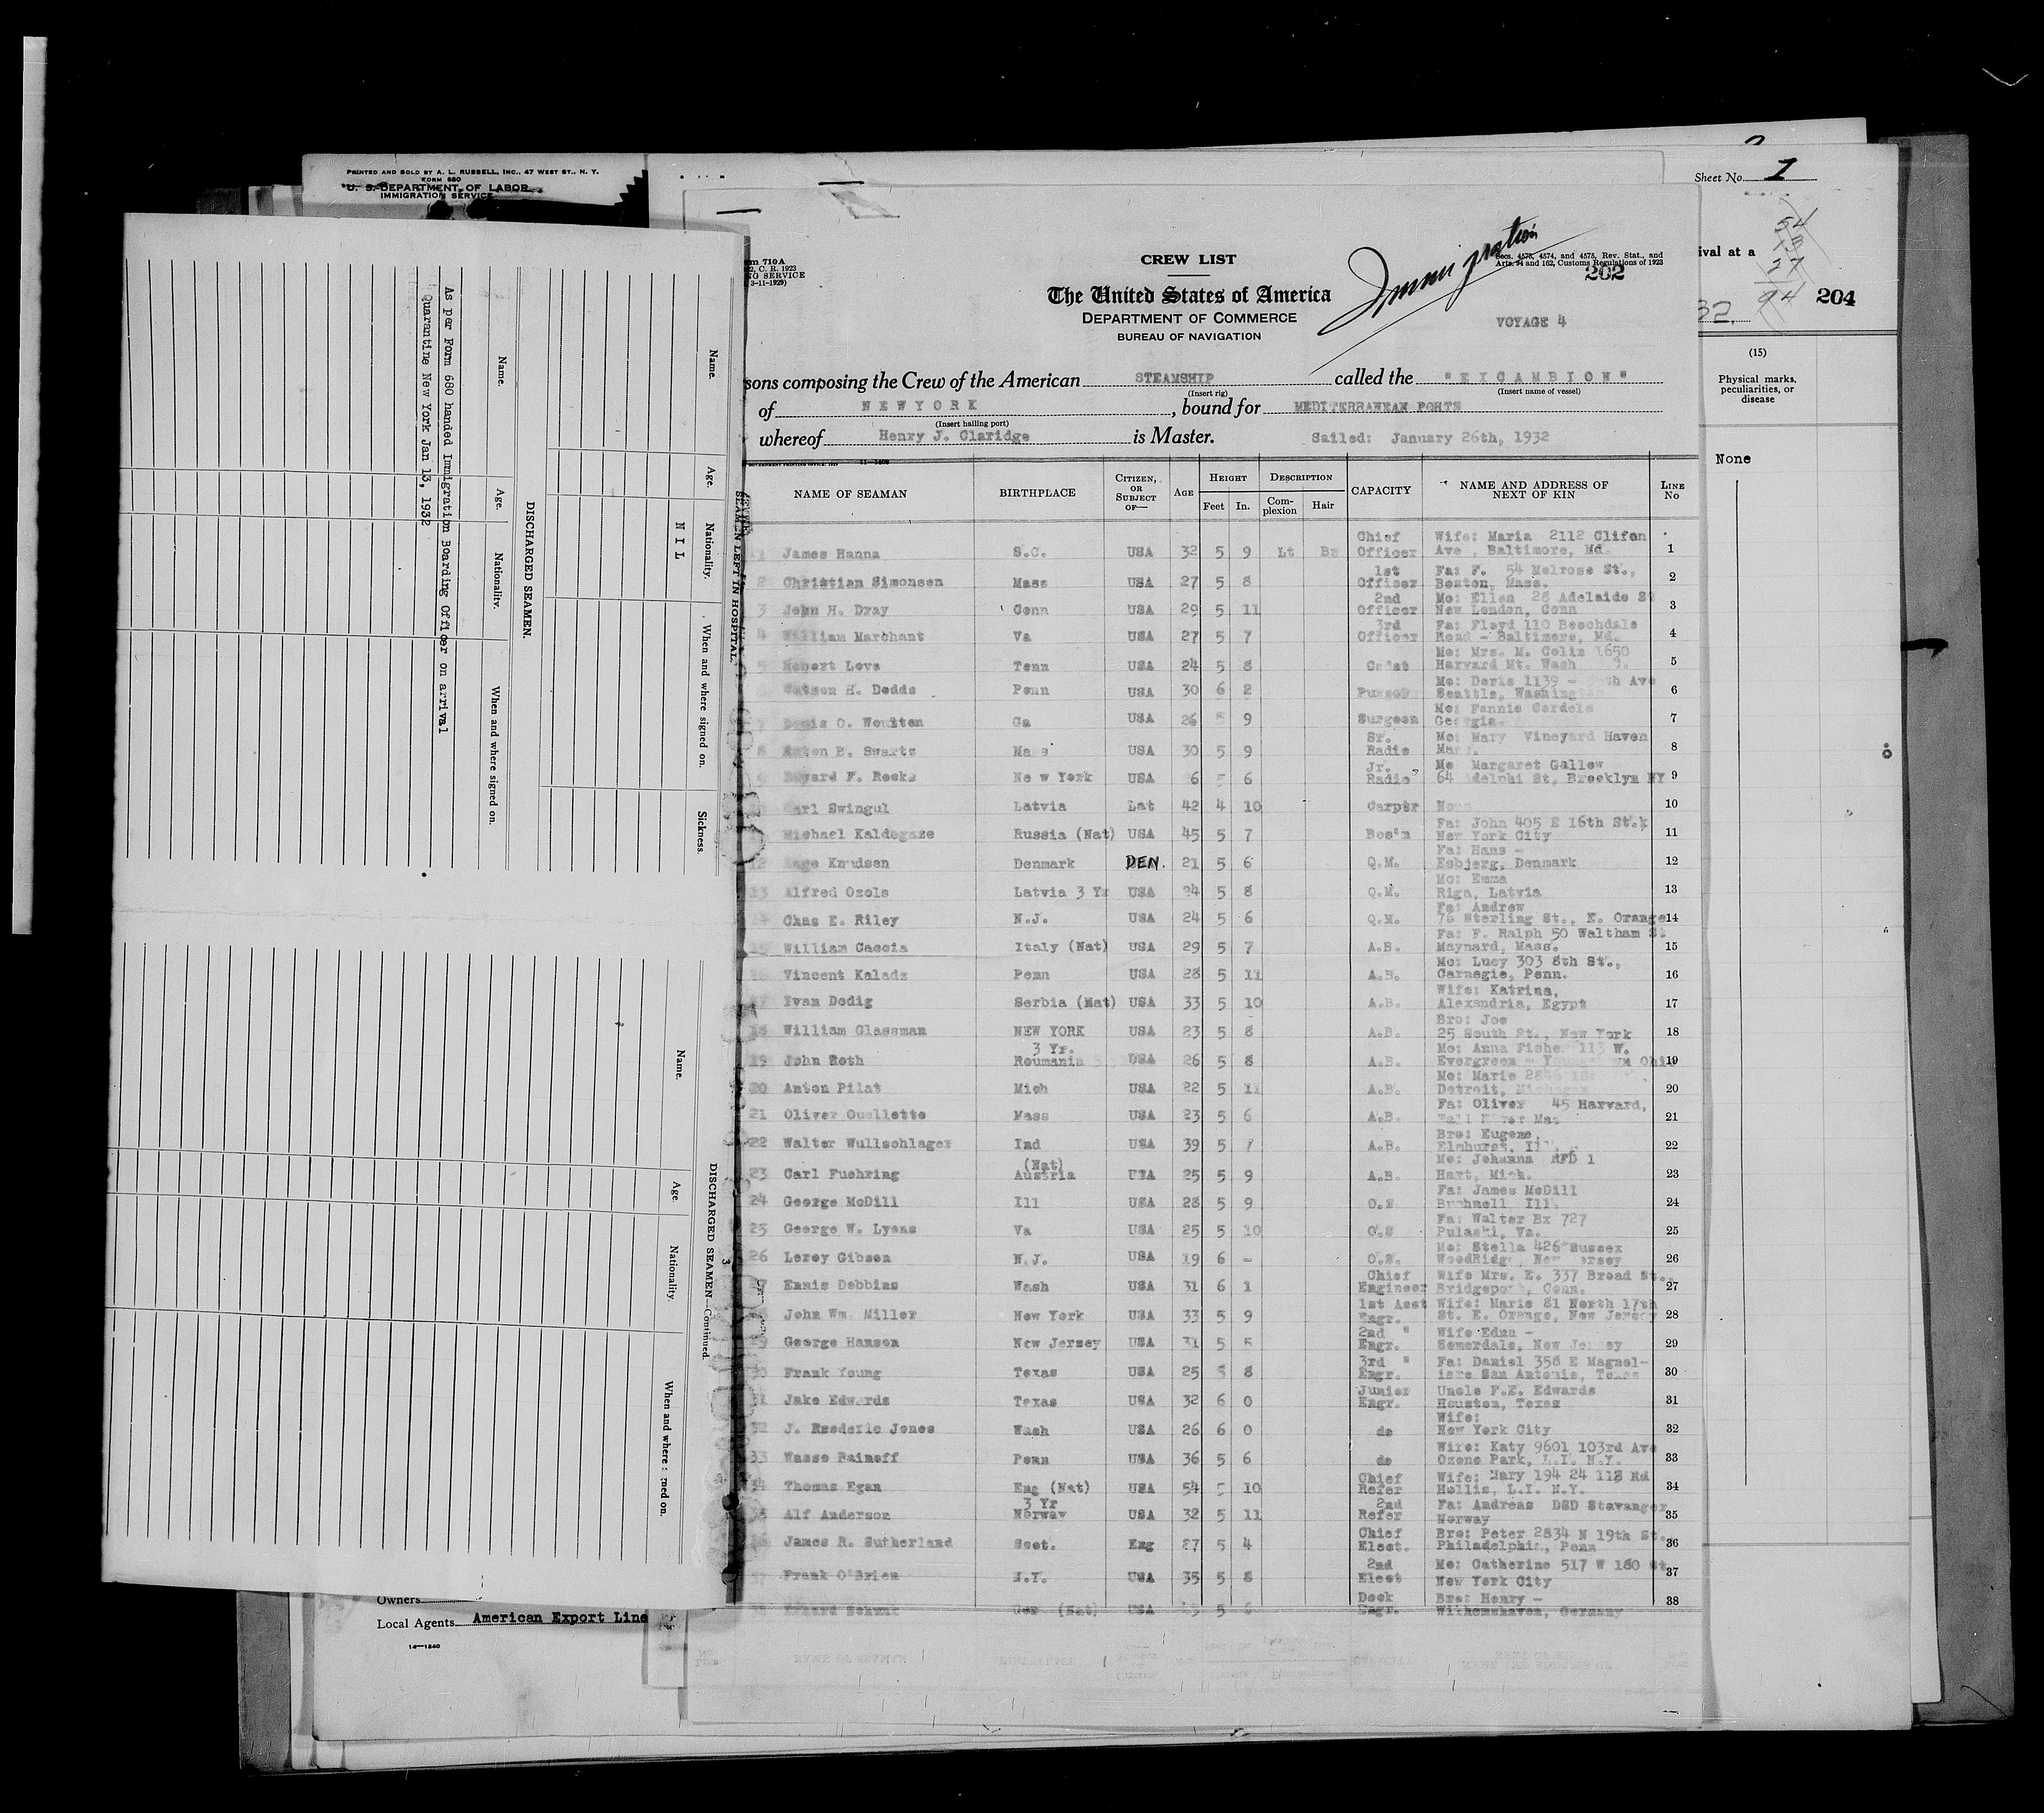 PRINTED AND SOLD BY A. L. RUSSELL, INC., 47 WEST ST., N. Y.
FORM 680
U. S. DEPARTMENT OF LABOR
IMMIGRATION SERVICE
Name.
Age.
Nationality.
When and where signed on.
Sickness.
N I L
SEAMEN LEFT IN HOSPITAL.
DISCHARGED SEAMEN.
Name.
Age.
Nationality.
When and where signed on.
As per Form 680 handed Immigration Boarding Officer on arrival
Quarantine New York Jan 13, 1932
3
DISCHARGED SEAMEN—Continued.
Name.
Age.
Nationality.
When and where signed on.
Owners
Local Agents American Export Line
14—1240
Sheet No. 1
ival at a
54
13
27
94
204
32.
(15)
Physical marks, peculiarities, or disease
None
m 710A
C. R. 1923
NG SERVICE
3-11-1929)
CREW LIST
The United States of America
DEPARTMENT OF COMMERCE
BUREAU OF NAVIGATION
Immigration
Secs. 4573, 4574, and 4575, Rev. Stat., and
Arts. 94 and 162, Customs Regulations of 1923
202
VOYAGE 4
sons composing the Crew of the American STEAMSHIP called the "EXCAMBION"
(Insert rig) (Insert name of vessel)
of NEWYORK , bound for MEDITERRANEAN PORTS
(Insert hailing port)
whereof Henry J. Claridge is Master. Sailed: January 26th, 1932
NAME OF SEAMAN BIRTHPLACE CITIZEN, OR SUBJECT OF— AGE HEIGHT Feet In. DESCRIPTION Complexion Hair CAPACITY NAME AND ADDRESS OF NEXT OF KIN LINE No
James Hanna S.C. USA 32 5 9 Lt Bn Chief Officer Wife: Maria 2112 Clifon Ave , Baltimore, Md. 1
2 Christian Simonsen Mass USA 27 5 8 1st Officer Fa: F. 54 Melrose St., Boston, Mass. 2
3 John H. Dray Conn USA 29 5 11 2nd Officer Mo: Ellen 28 Adelaide St New London, Conn 3
4 William Marchant Va USA 27 5 7 3rd Officer Fa: Floyd 110 Beechdale Road - Baltimore, Md. 4
5 Robert Love Tenn USA 24 5 8 Cadet Mo: Mrs. M. Colin 1650 Harvard Mt. Wash 5
Watson H. Dodds Penn USA 30 6 2 Purser Mo: Doris 1139 - th Ave Seattle, Washington 6
O. Woulten Ga USA 26 5 9 Surgeon Mo: Fannie Cordele Georgia. 7
8 Anton B. Swartz Mass USA 30 5 9 Sr. Radio Mo: Mary Vineyard Haven Mass. 8
F. Reeks New York USA 6 5 6 Jr. Radio Mo Margaret Gallow 64 Adelphi St, Brooklyn NY 9
Carl Swingul Latvia Lat 42 4 10 Carptr None 10
Michael Kaldegaze Russia (Nat) USA 45 5 7 Bos'n Fa: John 405 E 16th St. New York City 11
12 Aage Knudsen Denmark DEN. 21 5 6 Q.M. Fa: Hans - Esbjerg, Denmark 12
13 Alfred Ozols Latvia 3 Yr USA 24 5 8 Q.M. Mo: Emma Riga, Latvia 13
Chas E. Riley N.J. USA 24 5 6 Q.M. Fa: Andrew 76 Sterling St., E. Orange 14
15 William Caccia Italy (Nat) USA 29 5 7 A.B. Fa: F. Ralph 50 Waltham St Maynard, Mass. 15
Vincent Kaladz Penn USA 28 5 11 A.B. Mo: Lucy 303 8th St., Carnegie, Penn. 16
17 Ivan Dodig Serbia (Nat) USA 33 5 10 A.B. Wife: Katrina, Alexandria, Egypt 17
18 William Glassman NEW YORK USA 23 5 8 A.B. Bro: Joe 25 South St., New York 18
19 John Roth 3 Yr. Roumania USA 26 5 8 A.B. Mo: Anna Fisher 113 W. Evergreen - Ohio 19
20 Anton Pilat Mich USA 22 5 11 A.B. Mo: Marie 2846 Detroit, Michogan 20
21 Oliver Ouellette Mass USA 23 5 6 A.B. Fa: Oliver 45 Harvard, Fall River Mas 21
22 Walter Wullschlager Ind USA 39 5 7 A.B. Bro: Eugene, Elmhurst, Ill. 22
23 Carl Fuehring (Nat) Austria USA 25 5 9 A.B. Mo: Johanna RFD 1 Hart, Mich. 23
24 George McDill Ill USA 28 5 9 O.S Fa: James McDill Bushnell Ill. 24
25 George W. Lyons Va USA 25 5 10 O.S Fa: Walter Bx 727 Pulaski, Va. 25
26 Leroy Gibson N.J. USA 19 6 - O.S. Mo: Stella 426 Sussex WoodRidge, New Jersey 26
27 Ennis Dobbins Wash USA 31 6 1 Chief Engineer Wife Mrs. E. 337 Broad St. Bridgeport, Conn. 27
John Wm. Miller New York USA 33 5 9 1st Asst Engr. Wife: Marie 81 North 17th St. E. Orange, New Jersey 28
29 George Hansen New Jersey USA 31 5 5 2nd " Engr. Wife Edna - Somerdale, New Jersey 29
30 Frank Young Texas USA 25 5 8 3rd " Engr. Fa: Daniel 358 E Magnol- San Antonio, Texas 30
31 Jake Edwards Texas USA 32 6 0 Junior Engr. Uncle F.E. Edwards Houston, Texas 31
32 J. Jones Wash USA 26 6 0 do Wife: New York City 32
33 Wasso Raineff Penn USA 36 5 6 do Wife: Katy 9601 103rd Ave Ozone Park, L.I. N.Y. 33
34 Thomas Egan Eng (Nat) USA 54 5 10 Chief Refer Wife: Mary 194 24 118 Rd Hollis, L.I. N.Y. 34
35 Alf Anderson 3 Yr Norway USA 32 5 11 2nd Refer Fa: Andreas DSD Stavanger Norway 35
James R. Sutherland Scot. Eng 27 5 4 Chief Elect. Bro: Peter 2834 N 19th St. Philadelphia, Penn 36
Frank O'Brien N.Y. USA 35 5 8 2nd Elect Mo: Catherine 517 W 180 St New York City 37
Ger (Nat) USA 5 Deck Engr. Bro: Henry - Wilhemshaven, Germany 38